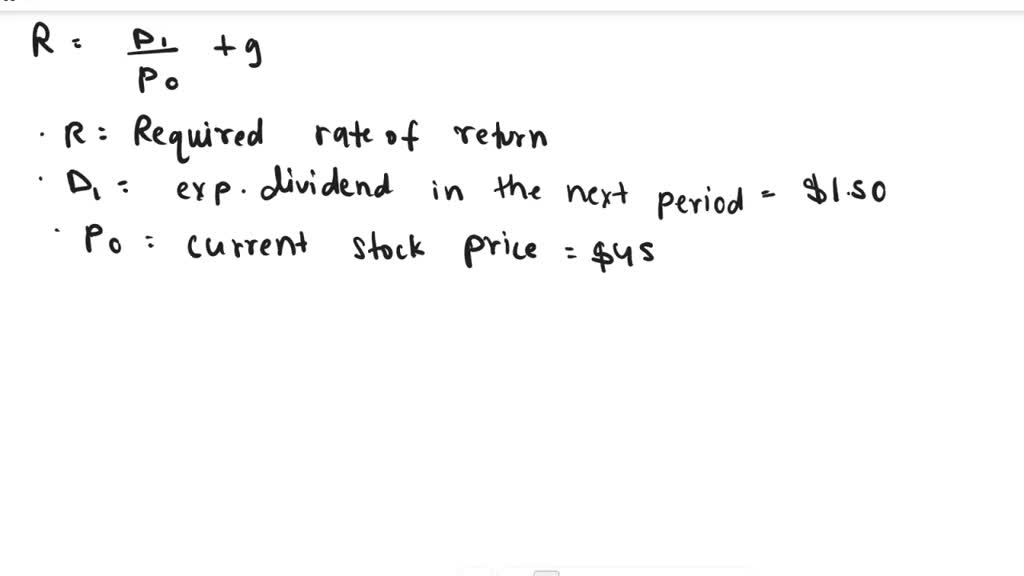 R = D₁/P₀ + g
· R = Required rate of return
· D₁ = exp. dividend in the next period = $1.50
· P₀ = current stock price = $45